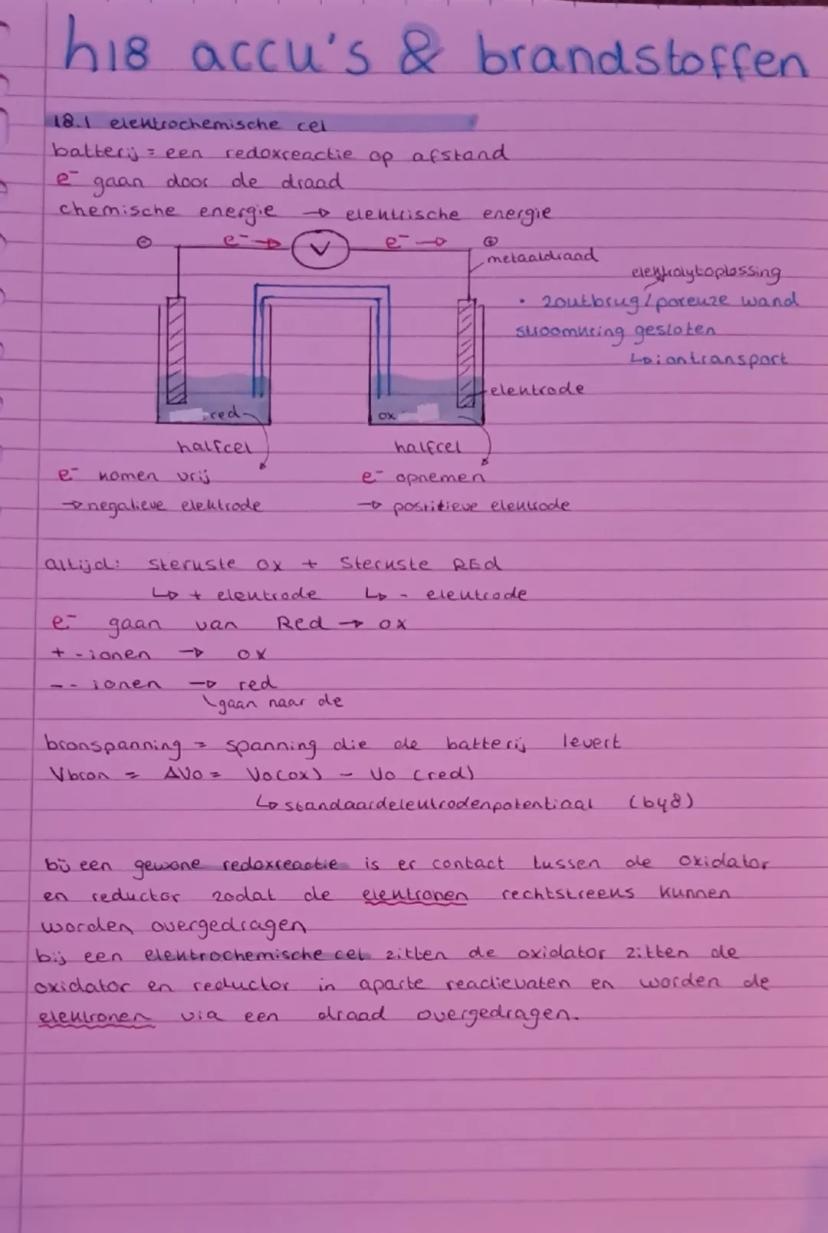 h18 accu's & brandstoffen
18.1 elektrochemische cel
batterij = een redoxreactie op afstand
e⁻ gaan door de draad
chemische energie → elektrische energie
⊖ e⁻→ V e⁻→ ⊕
metaaldraad
elektrolytoplossing
• zoutbrug/poreuze wand
stroomkring gesloten
↳ iontransport
elektrode
red
ox
halfcel halfcel
e⁻ komen vrij e⁻ opnemen
→ negatieve elektrode → positieve elektrode
altijd: sterkste ox + sterkste REd
↳ + elektrode ↳ - elektrode
e⁻ gaan van Red → ox
+ -ionen → ox
-- ionen → red
gaan naar de
bronspanning = spanning die de batterij levert
Vbron = ΔV0 = V0(ox) - V0 (red)
↳ standaardelektrodenpotentiaal (b48)
bij een gewone redoxreactie is er contact tussen de oxidator
en reductor zodat de elektronen rechtstreeks kunnen
worden overgedragen
bij een elektrochemische cel zitten de oxidator zitten de
oxidator en reductor in aparte reactievaten en worden de
elektronen via een draad overgedragen.